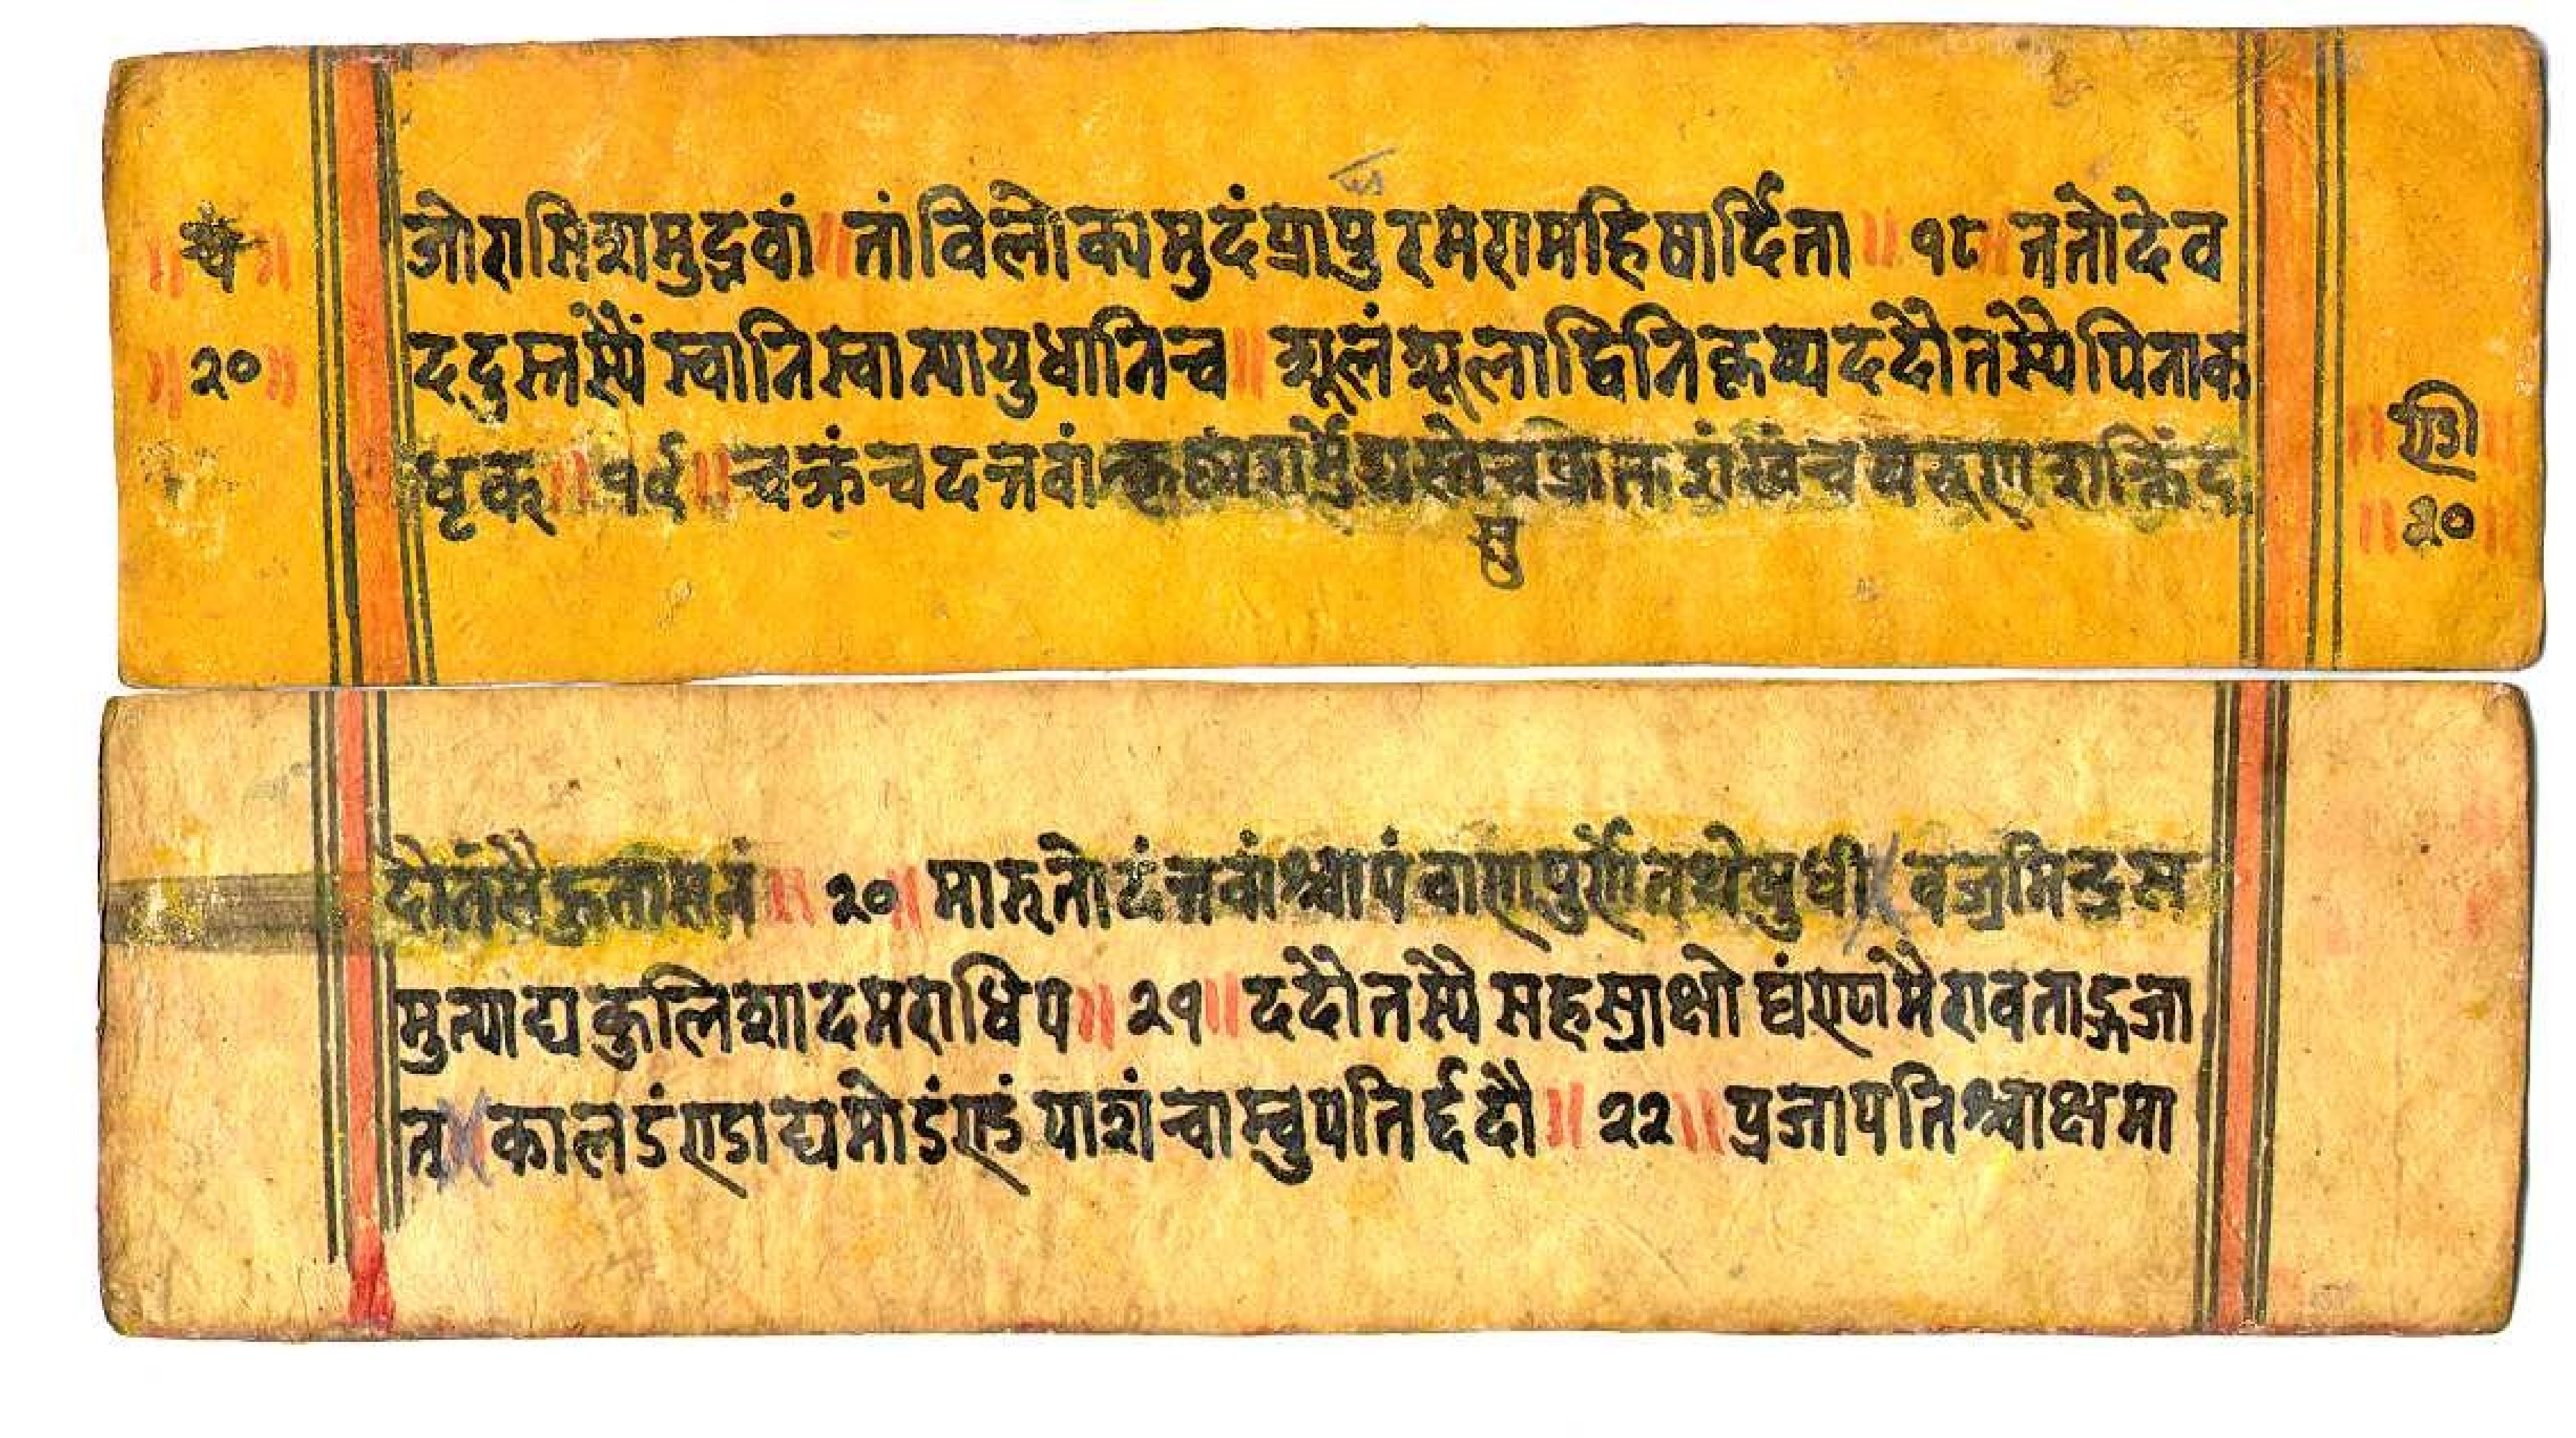 चं
॥ २० ॥
जोराशिशमुद्भवां ॥ तां विलोक्य मुदं प्रापुरमरा महिषार्दिता ॥ १८ ॥ ततो देव
ददुस्तस्यै स्वानि स्वान्यायुधानि च ॥ शूलं शूलाद्विनिकृष्य ददौ तस्यै पिनाक
धृक् ॥ १९ ॥ चक्रं च दत्तवान्कृष्ण शंखं च वरुण शक्तिं द
सु
॥ २० ॥
दौ तस्यै हुताशनं ॥ २० ॥ मारुतो दत्तवांश्चापं वाणपुर्णे तथेषुधी वज्रमिन्द्रस
मुत्पाद्य कुलिशादमराधिप ॥ २१ ॥ ददौ तस्यै सहस्राक्षो घंण्टामैरावताद्गजा
त् कालडंण्डाद्यमो डंण्डं पाशं चाम्बुपतिर्द्ददौ ॥ २२ ॥ प्रजापतिश्चाक्षमा